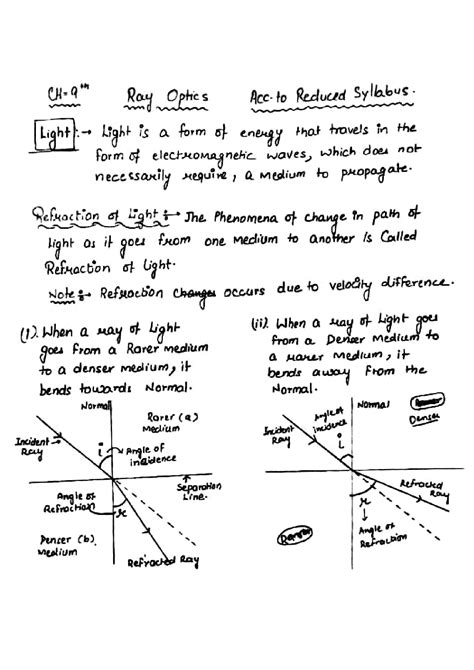 CH-9th Ray Optics Acc. to Reduced Syllabus.
Light :→ Light is a form of energy that travels in the
form of electromagnetic waves, which does not
necessarily require, a medium to propagate.
Refraction of Light :→ The Phenomena of change in path of
light as it goes from one Medium to another Is Called
Refraction of light.
Note :→ Refraction changes occurs due to velocity difference.
(i). When a ray of Light
goes from a Rarer medium
to a denser medium, it
bends towards Normal.
(ii). When a ray of Light goes
from a Denser Medium to
a rarer Medium, it
bends away from the
Normal.
Normal
Rarer (a)
Medium
Incident
Ray
i
Angle of
incidence
Separation
Line.
Angle of
Refraction
r
Denser (b).
Medium
Refracted Ray
Normal
Denser
Angle of
incidence
Incident
Ray
i
Refracted
Ray
r
Angle of
Refraction